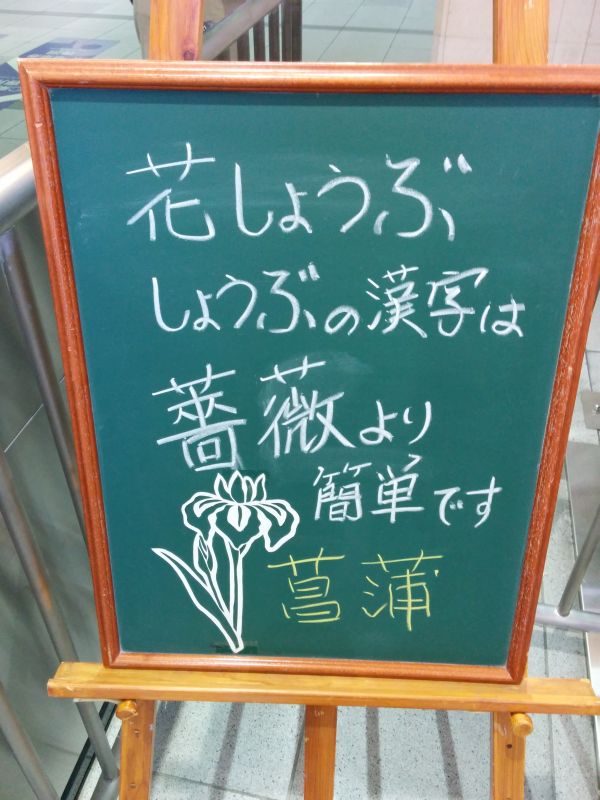 花しょうぶ
しょうぶの漢字は
薔薇より
簡単です
菖蒲